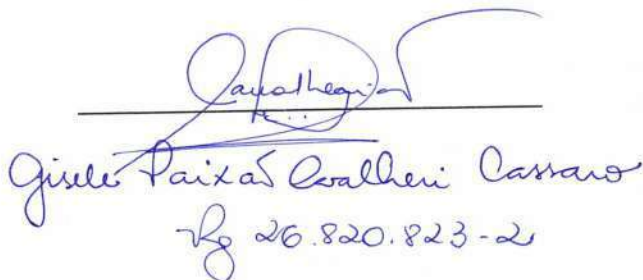 Gisele Paixão Cavalheri Cassaro
Rg 26.820.823-2